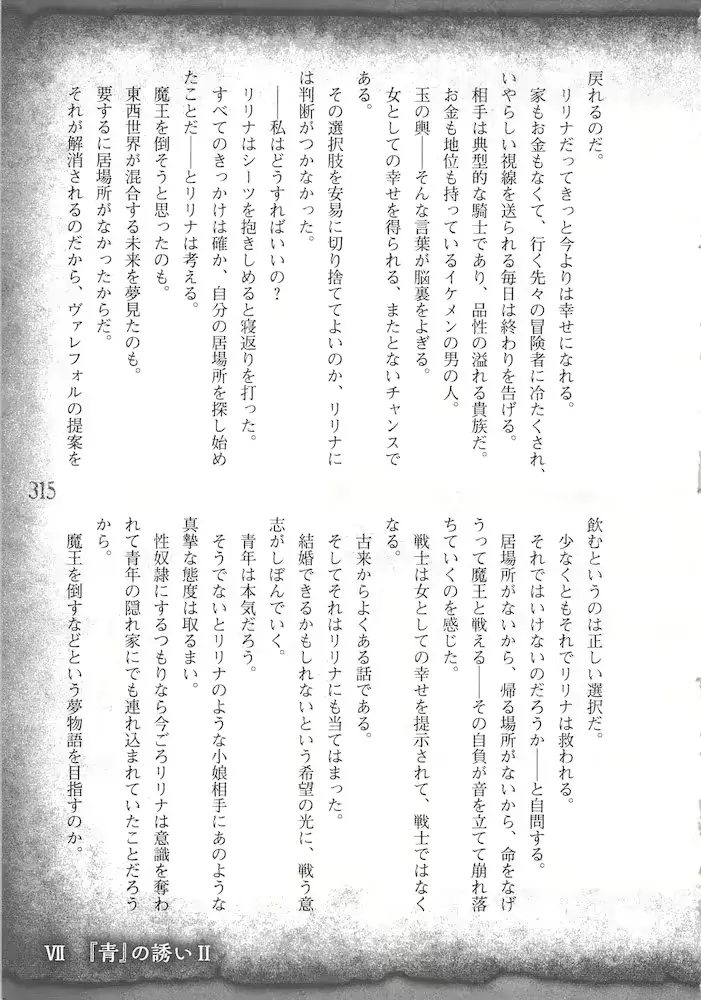 戻れるのだ。
　リリナだってきっと今よりは幸せになれる。
　家もお金もなくて、行く先々の冒険者に冷たくされ、
いやらしい視線を送られる毎日は終わりを告げる。
　相手は典型的な騎士であり、品性の溢れる貴族だ。
　お金も地位も持っているイケメンの男の人。
　玉の輿――そんな言葉が脳裏をよぎる。
　女としての幸せを得られる、またとないチャンスで
ある。
　その選択肢を安易に切り捨ててよいのか、リリナに
は判断がつかなかった。
　――私はどうすればいいの？
　リリナはシーツを抱きしめると寝返りを打った。
　すべてのきっかけは確か、自分の居場所を探し始め
たことだ――とリリナは考える。
　魔王を倒そうと思ったのも。
　東西世界が混合する未来を夢見たのも。
　要するに居場所がなかったからだ。
　それが解消されるのだから、ヴァレフォルの提案を
飲むというのは正しい選択だ。
　少なくともそれでリリナは救われる。
　それではいけないのだろうか――と自問する。
　居場所がないから、帰る場所がないから、命をなげ
うって魔王と戦える――その自負が音を立てて崩れ落
ちていくのを感じた。
　戦士は女としての幸せを提示されて、戦士ではなく
なる。
　古来からよくある話である。
　そしてそれはリリナにも当てはまった。
　結婚できるかもしれないという希望の光に、戦う意
志がしぼんでいく。
　青年は本気だろう。
　そうでないとリリナのような小娘相手にあのような
真摯な態度は取るまい。
　性奴隷にするつもりなら今ごろリリナは意識を奪わ
れて青年の隠れ家にでも連れ込まれていたことだろう
から。
　魔王を倒すなどという夢物語を目指すのか。
315
Ⅶ　『青』の誘いⅡ